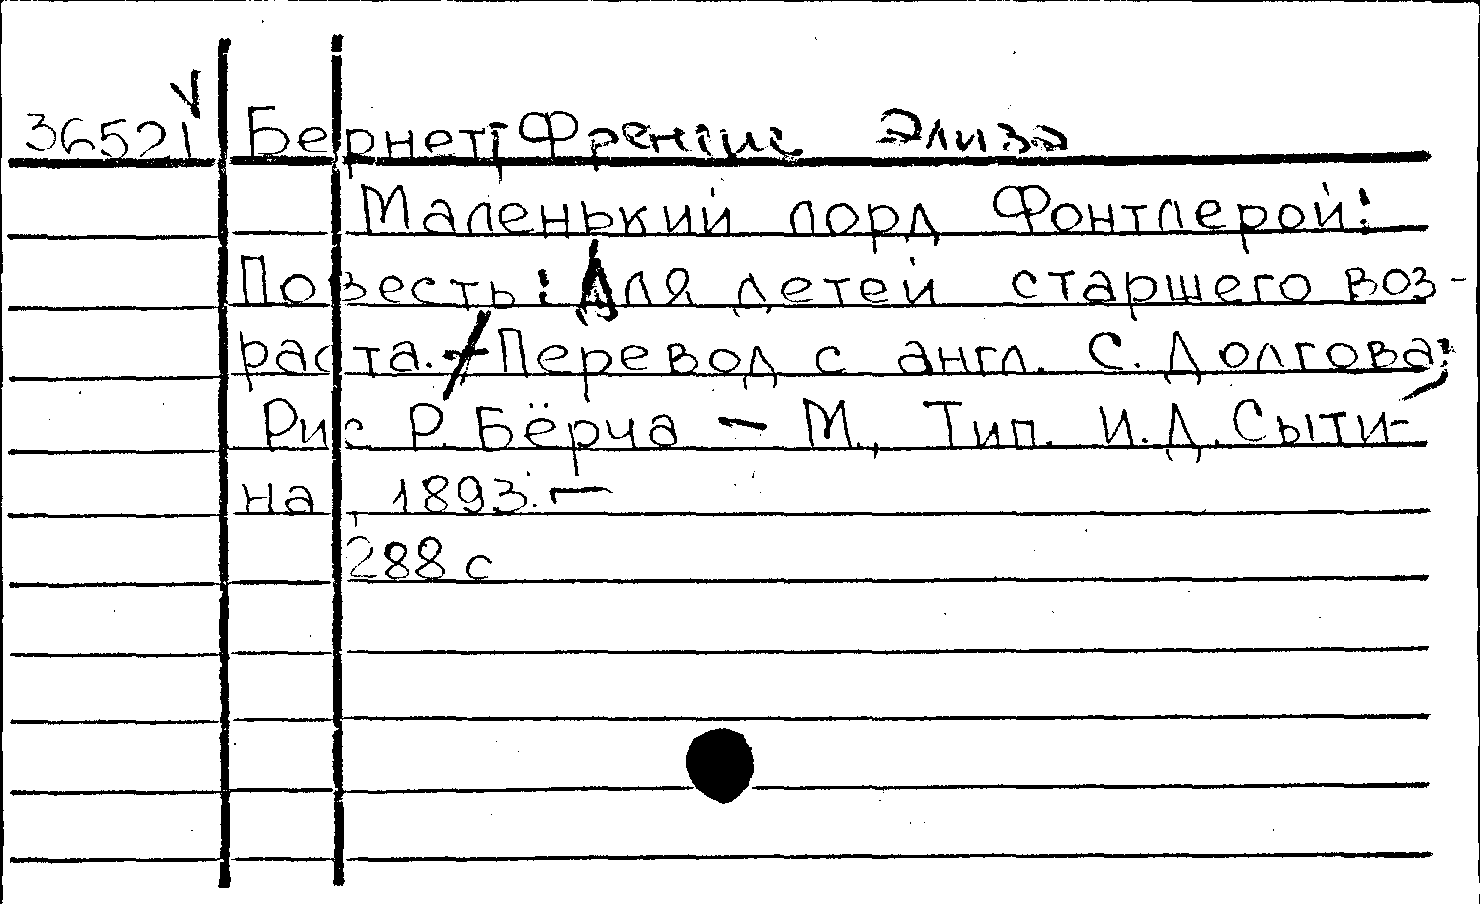 36521 Бернет Френсис Элиза
Маленький лорд Фонтлерой:
Повесть: Для детей старшего воз-
раста. / Перевод с англ. С. Долгова;
Рис Р. Бёрча – М., Тип. И.Д. Сыти-
на, 1893. –
288 с